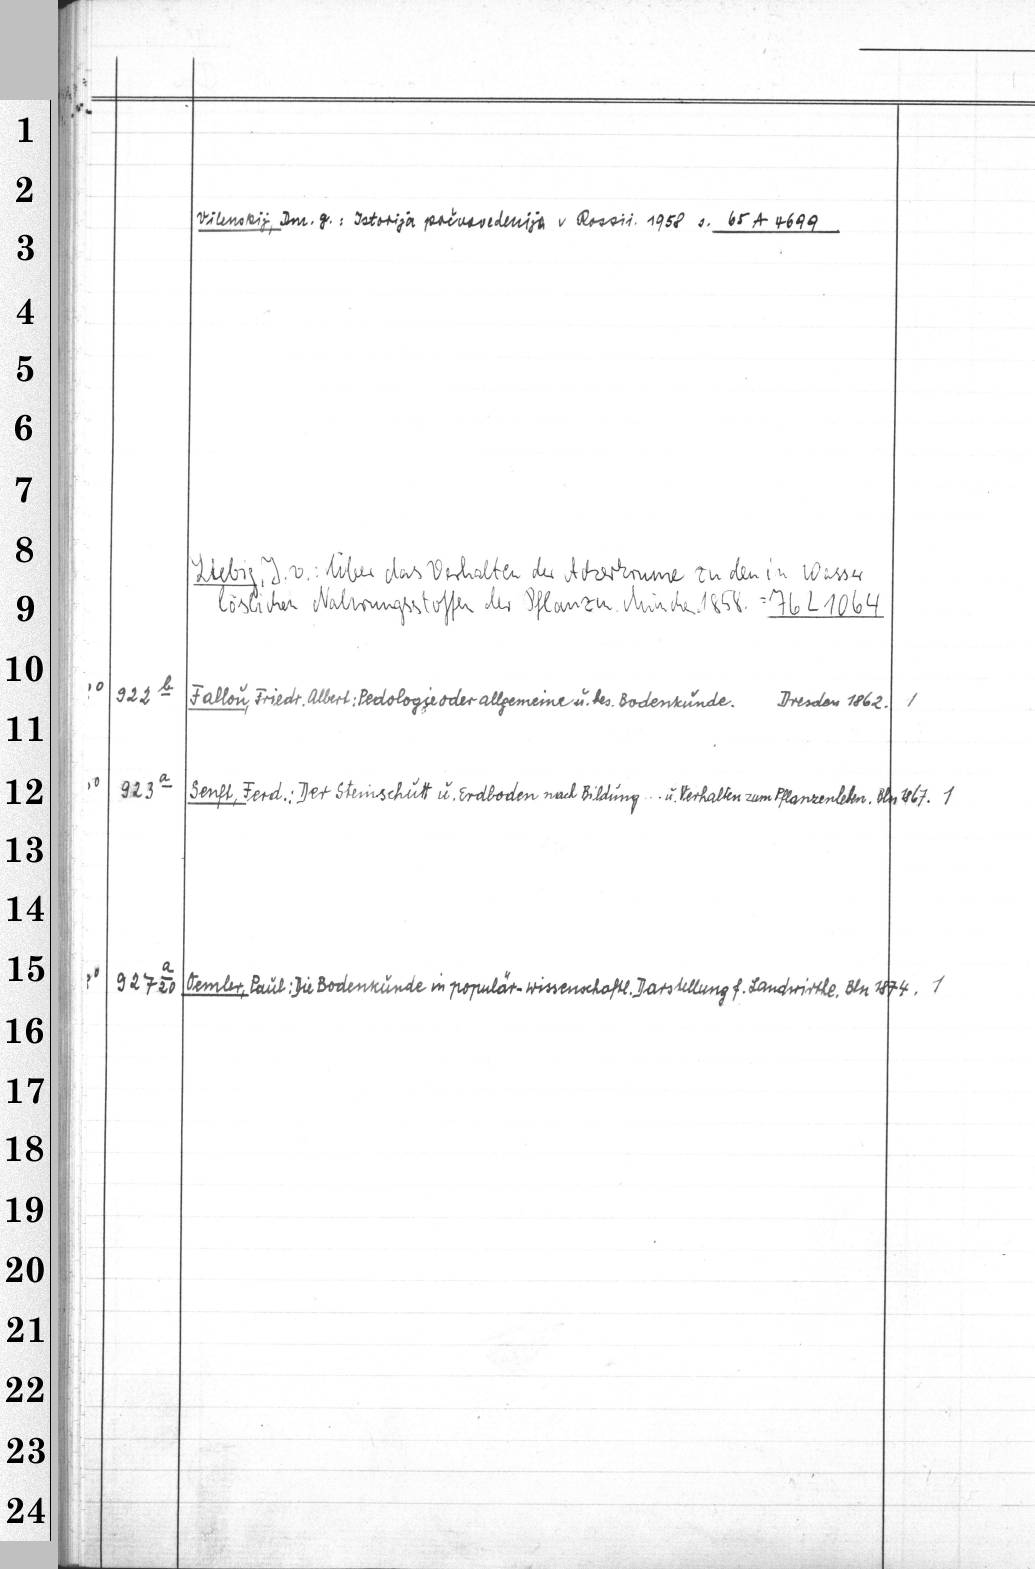 1
2
Vilenskij, Dm. G.: Istorija počvovedenija v Rossii. 1958 s. 65 A 4699
3
4
5
6
7
8
Liebig, J. v.: Über das Verhalten der Ackerkrume zu den in Wasser
9 löslichen Nahrungsstoffen der Pflanzen. München 1858. = 76 L 1064
10
922 b Fallou, Friedr. Albert: Pedologie oder allgemeine u. bes. Bodenkunde. Dresden 1862. 1
11
12 923 a Senft, Ferd.: Der Steinschutt u. Erdboden nach Bildung ... u. Verhalten zum Pflanzenleben. Bln 1867. 1
13
14
15 927 a/20 Oemler, Paul: Die Bodenkunde in populär-wissenschaftl. Darstellung f. Landwirthe. Bln 1874. 1
16
17
18
19
20
21
22
23
24